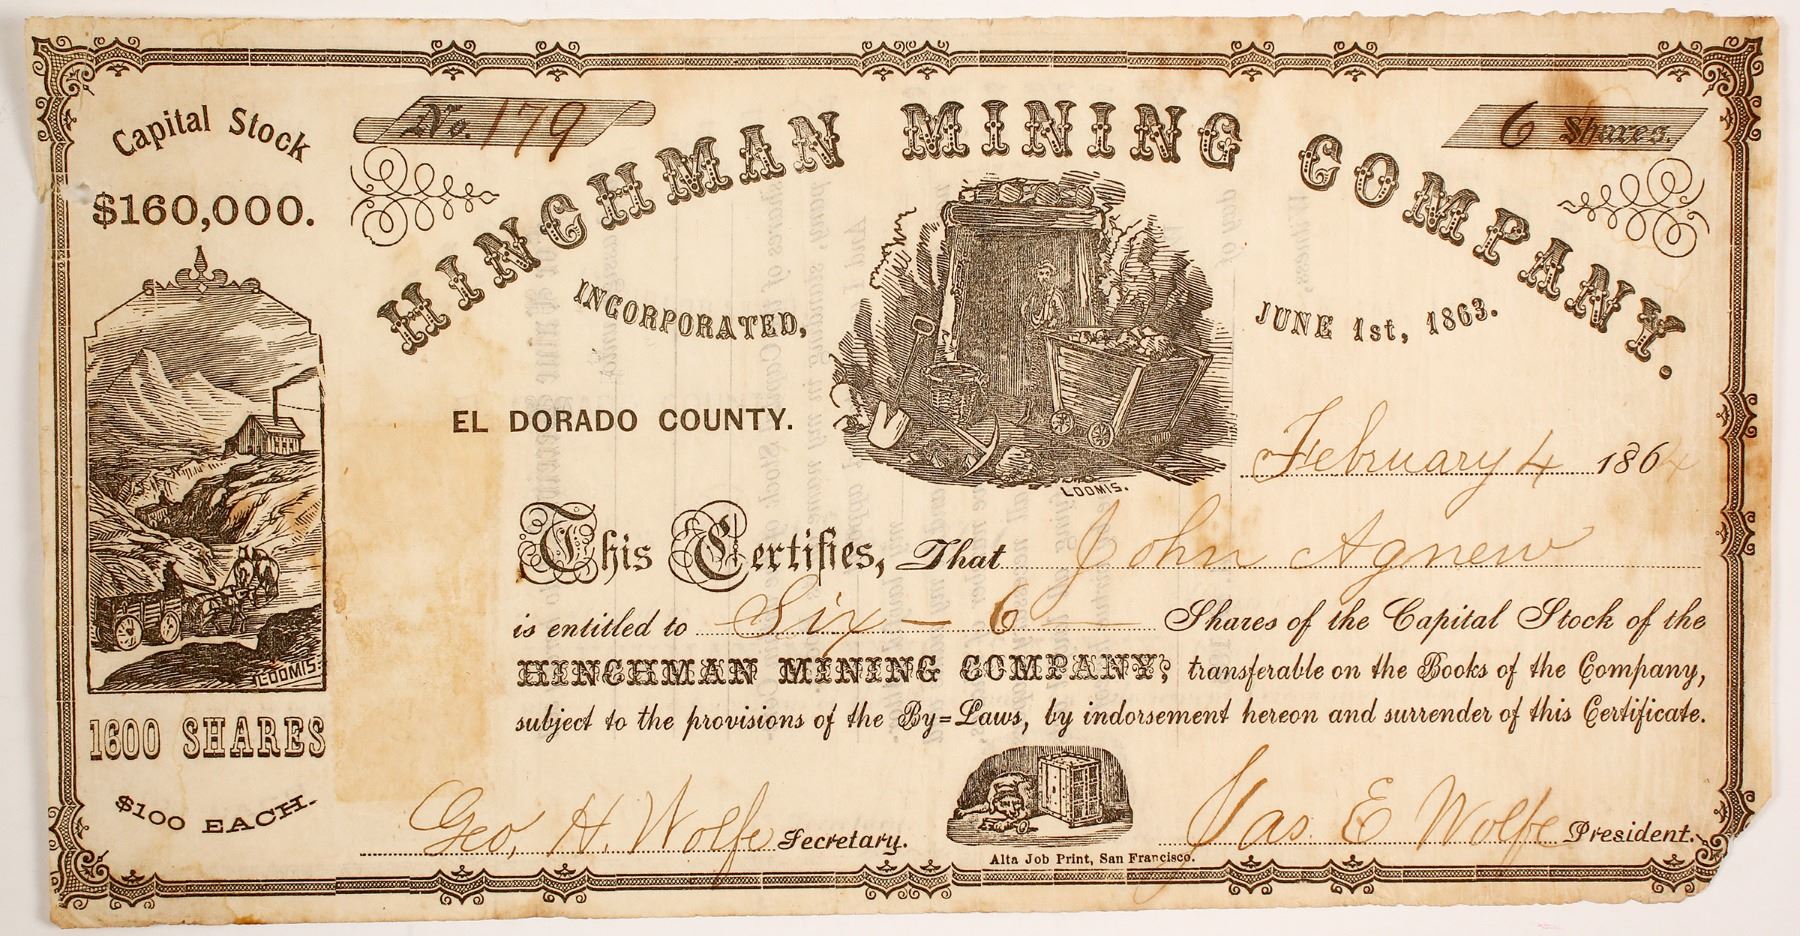 Capital Stock
$160,000.
LOOMIS.
1600 SHARES
$100 EACH.
No. 179
6 Shares.
HINCHMAN MINING COMPANY.
INCORPORATED, JUNE 1st, 1863.
EL DORADO COUNTY.
LOOMIS.
February 4 1864
This Certifies, That John Agnew
is entitled to Six — 6 — Shares of the Capital Stock of the
HINCHMAN MINING COMPANY; transferable on the Books of the Company,
subject to the provisions of the By=Laws, by indorsement hereon and surrender of this Certificate.
Geo. H. Wolfe Secretary. Jas E Wolfe President.
Alta Job Print, San Francisco.